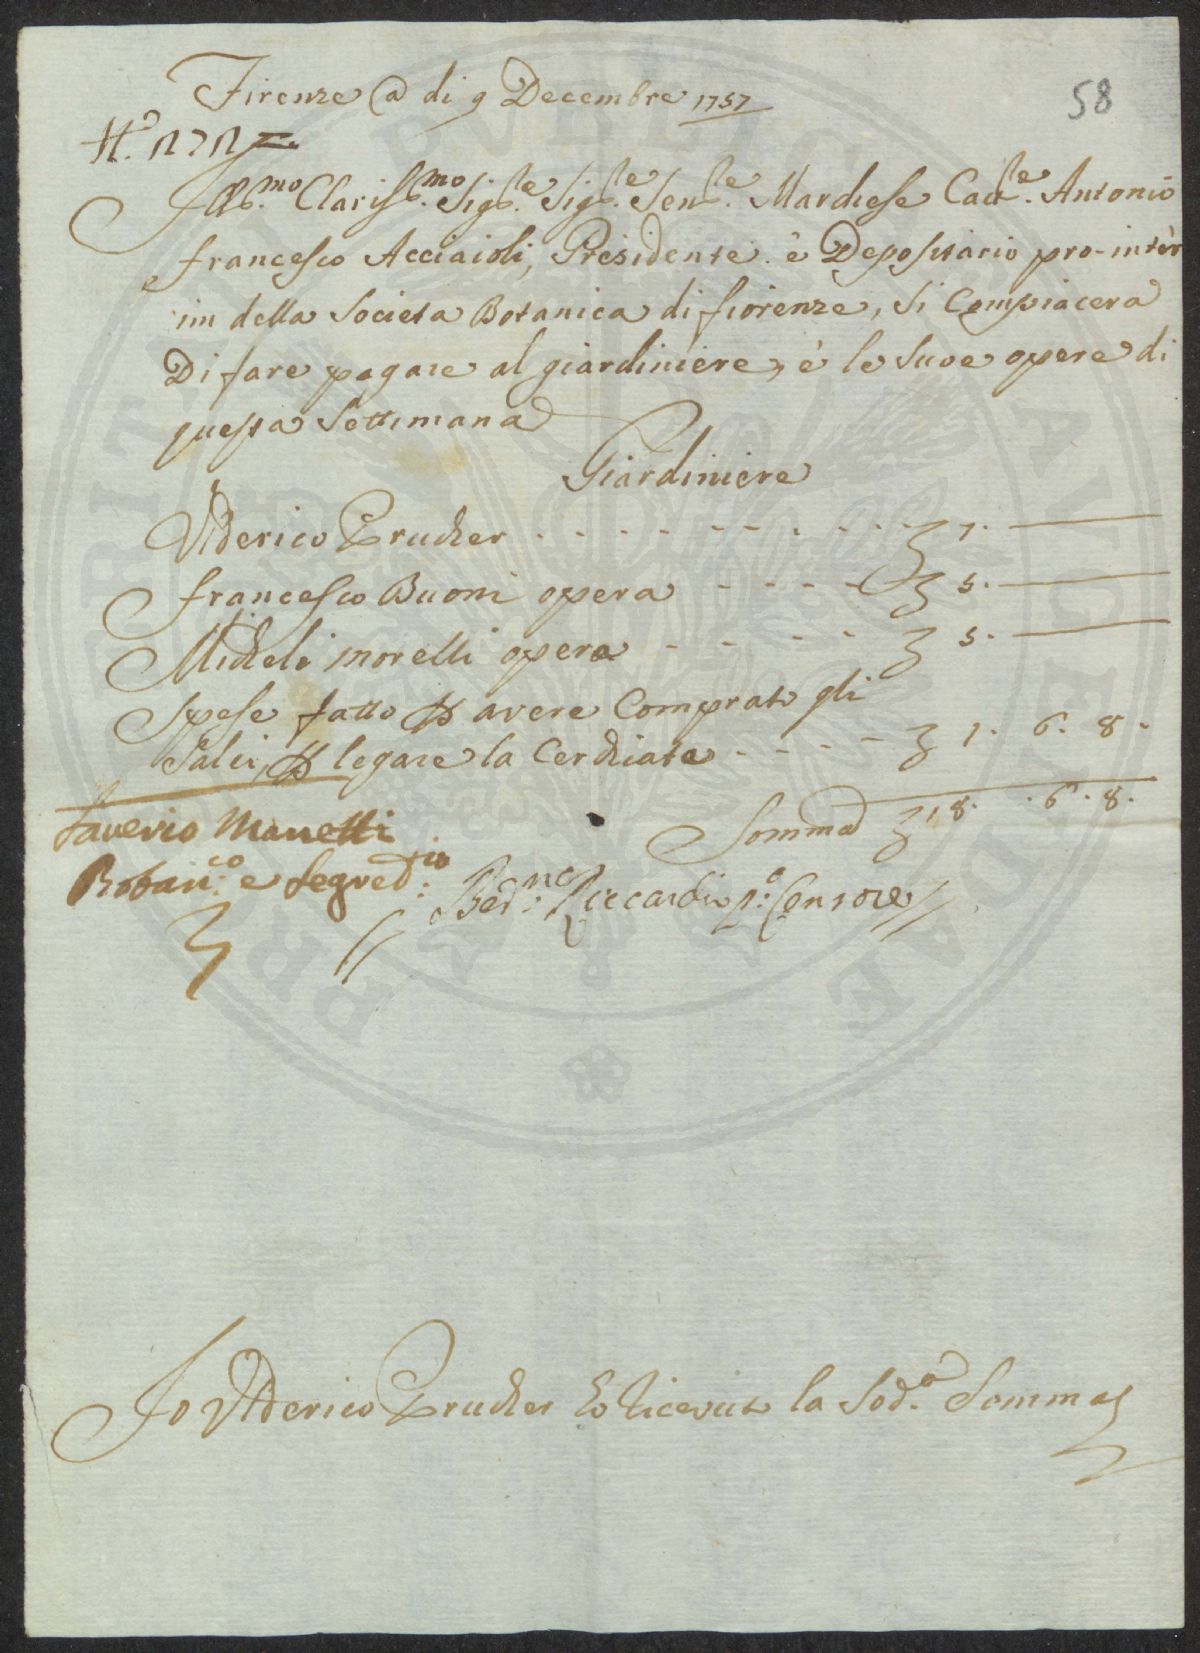 Firenze @ di 9 Decembre 1757
58
Ill.mo Clariss.mo Sig.re Sig.re Sen.re Marchese Cav.re Antonio
francesco Acciaioli, Presidente è Depositario pro-inter
im della Societa Botanica di fiorenze, si Compiacera
Di fare pagare al giardiniere, è le sue opere di
questa Settimana
Giardiniere
Vlderico Prucher - - - - - - - - - £ 7. —
francesco Buoni opera - - - - - £ 5. —
Micheli morelli opera - - - - - £ 5. —
Spese fatto p avere Comprato gli
Salci, p legare la Cerchiata - - - - £ 1. 6. 8.
Somma £ 18. 6. 8.
Saverio Manetti
Botan.co e Segret.rio
Ber.no Riccardi p.o Censore
Io Vlderico Prucher ho ricevuto la Sod.a Somma